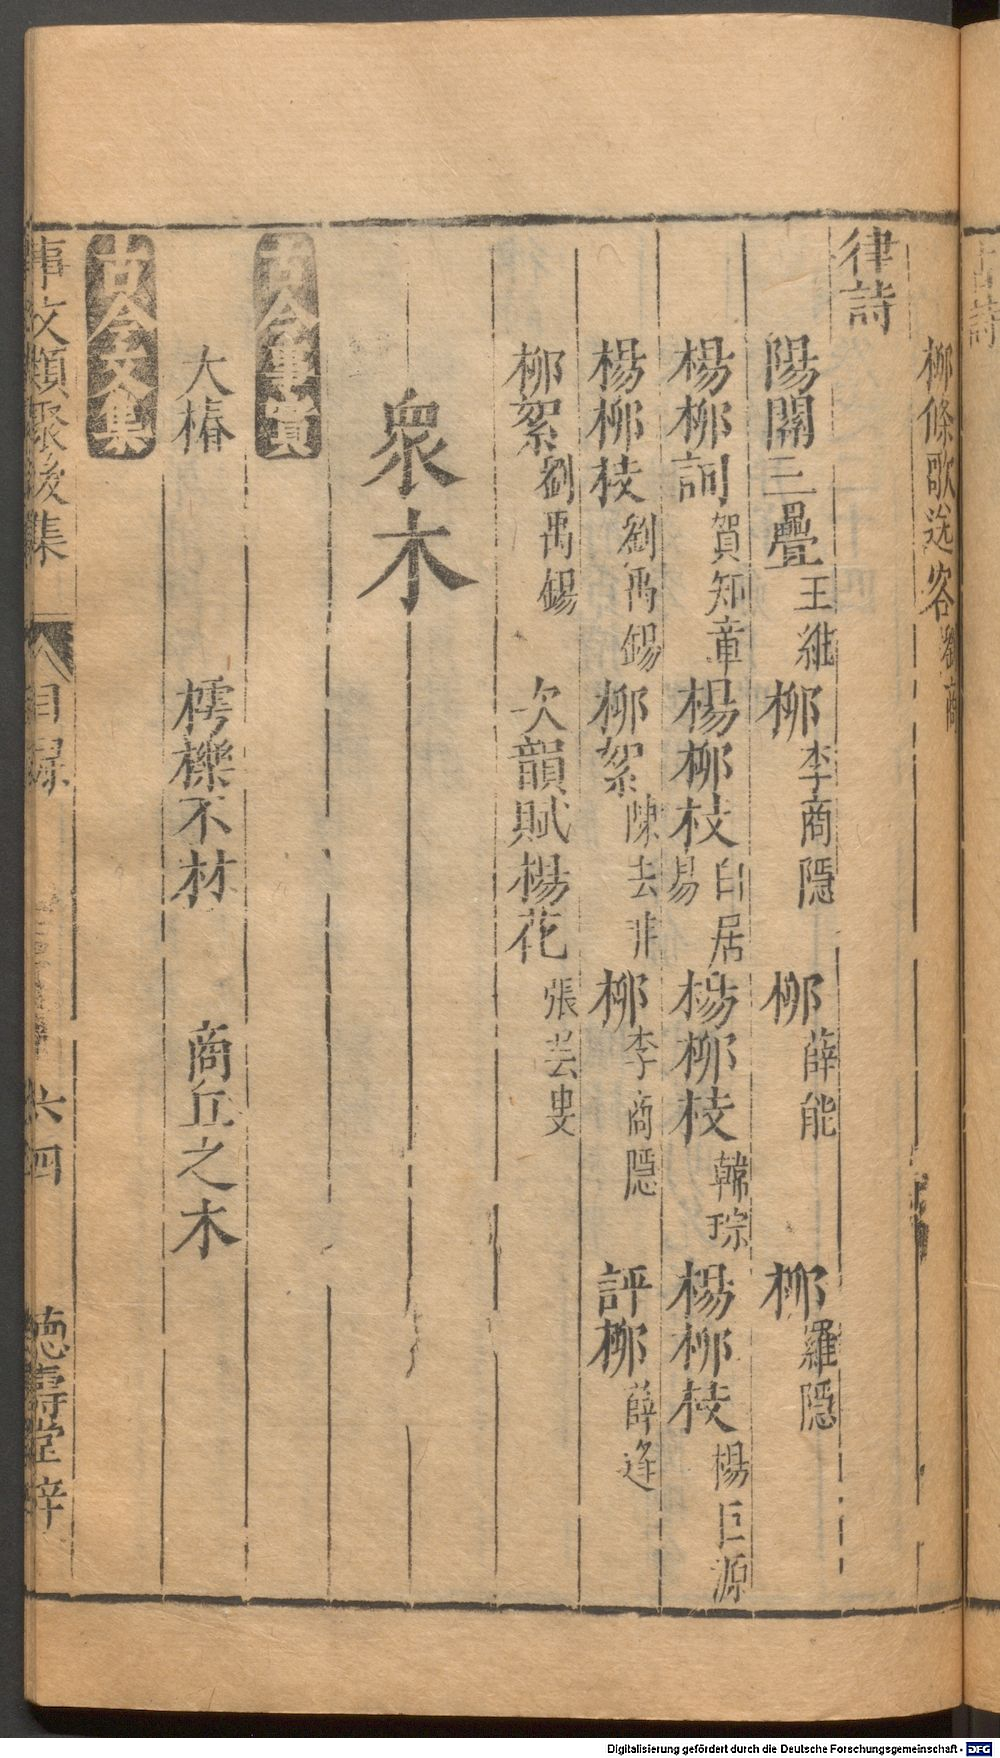 古詩
柳條歌送客劉商
律詩
陽關三疊王維 柳李商隱 柳薛能 柳羅隱
楊柳詞賀知章 楊柳枝白居易 楊柳枝韓琮 楊柳枝楊巨源
楊柳枝劉禹錫 柳絮陳去非 柳李商隱 評柳薛逢
柳絮劉禹錫 次韻賦楊花張芸叟
衆木
古今事實
大椿 樗櫟不材 商丘之木
古今文集
事文類聚後集 目録 六四 德壽堂梓
Digitalisierung gefördert durch die Deutsche Forschungsgemeinschaft - DFG